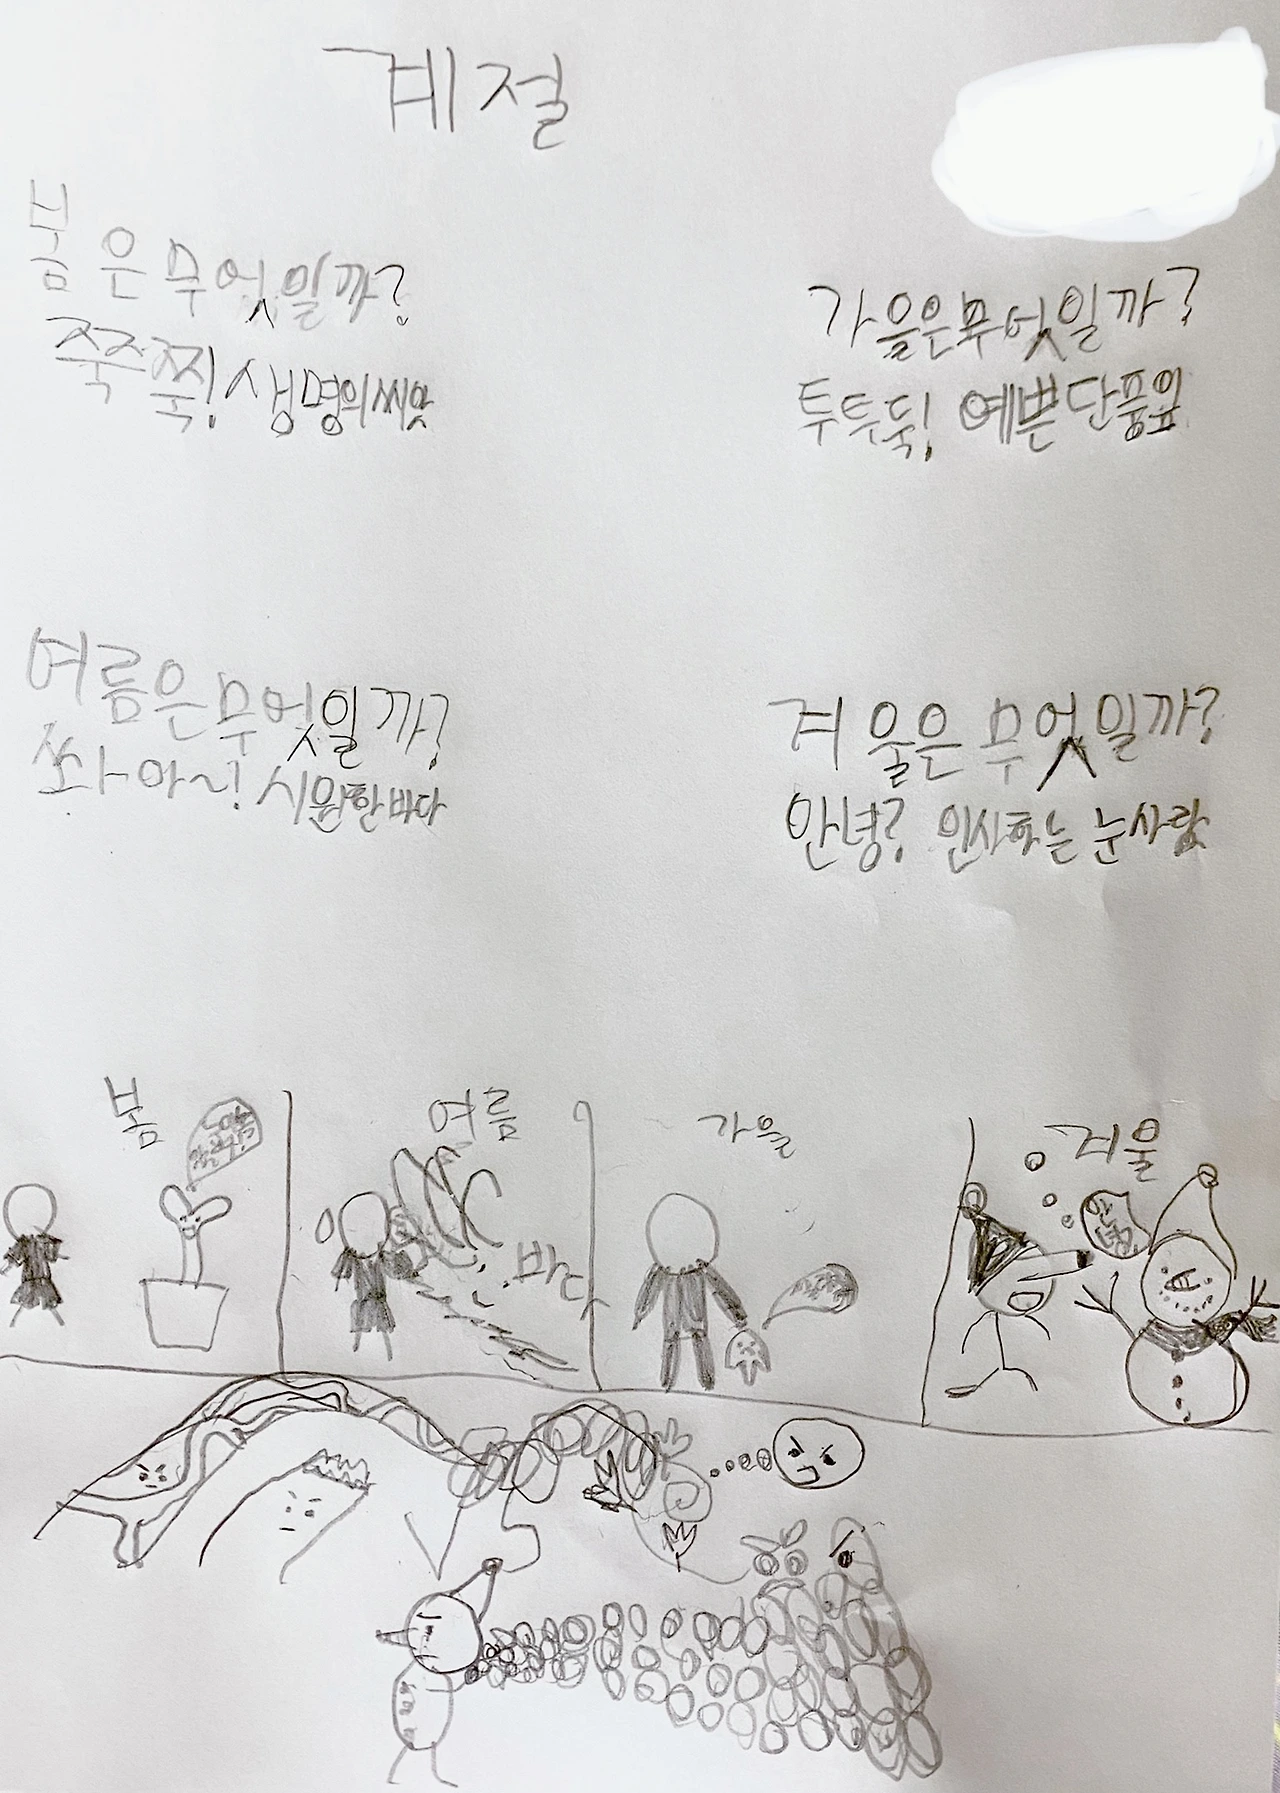 계절
봄은 무엇일까?
쭉쭉쭉! 생명의 씨앗
여름은 무엇일까?
쏴아~! 시원한 바다
가을은 무엇일까?
투투툭! 예쁜 단풍잎
겨울은 무엇일까?
안녕? 인사하는 눈사람
봄
여름
바다
가을
겨울
안녕